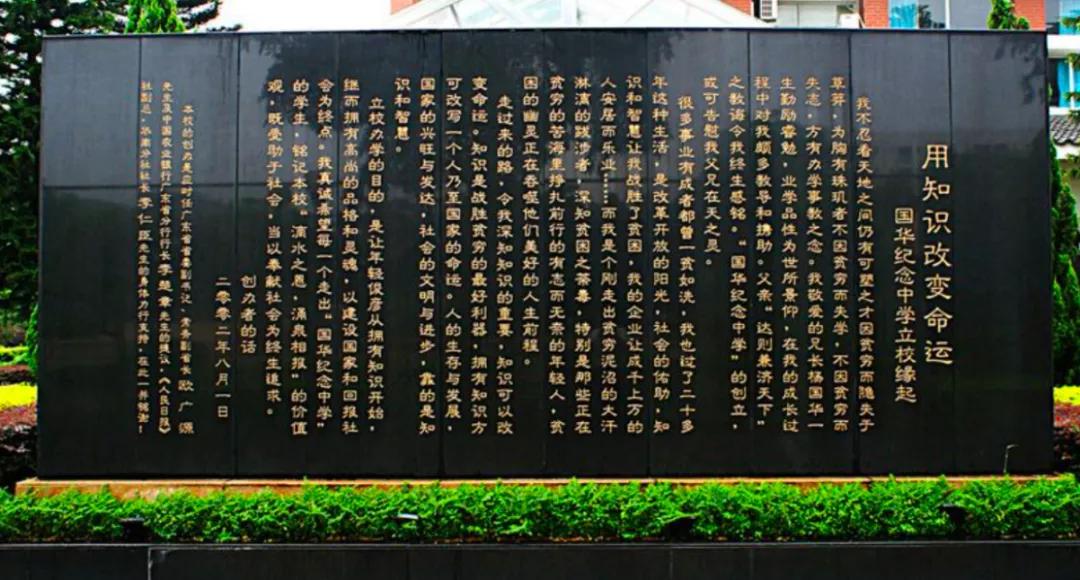 用知识改变命运
国华纪念中学立校缘起
我不忍看天地之间仍有可塑之才因贫穷而隐失于
草莽，为胸有珠玑者不因贫穷而失学，不因贫穷而
失志，方有办学事教之念。我敬爱的兄长杨国华一
生勤励睿勉，业学品性为世所景仰，在我的成长过
程中对我颇多教导和携助。父亲“达则兼济天下”
之教诲令我终生感铭。“国华纪念中学”的创立，
或可告慰我父兄在天之灵。
很多事业有成者都曾一贫如洗，我也过了二十多
年这种生活，是改革开放的阳光，社会的佑助，知
识和智慧让我战胜了贫困，我的企业让成千上万的
人安居而乐业……而我是个刚走出贫穷泥沼的大汗
淋漓的跋涉者，深知贫困之荼毒，特别是那些正在
贫穷的苦海里挣扎前行的有志而无奈的年轻人，贫
困的幽灵正在吞噬他们美好的人生前程。
走过来的路，令我深知知识的重要，知识可以改
变命运。知识是战胜贫穷的最好利器，拥有知识方
可改写一个人乃至国家的命运。人的生存与发展，
国家的兴旺与发达，社会的文明与进步，靠的是知
识和智慧。
立校办学的目的，是让年轻俊彦从拥有知识开始，
继而拥有高尚的品格和灵魂，以建设国家和回报社
会为终点。我真诚希望每一个走出“国华纪念中学”
的学生，铭记本校“滴水之恩，涌泉相报”的价值
观，既受助于社会，当以奉献社会为终生追求。
创办者的话
二零零二年八月一日
本校的创办是应时任广东省省委副书记、常务副省长欧广源
先生及中国农业银行广东省分行行长李楚章先生的提议，《人民日报》
社副总、华南分社社长李仁臣先生的身体力行支持，在此一并铭谢！